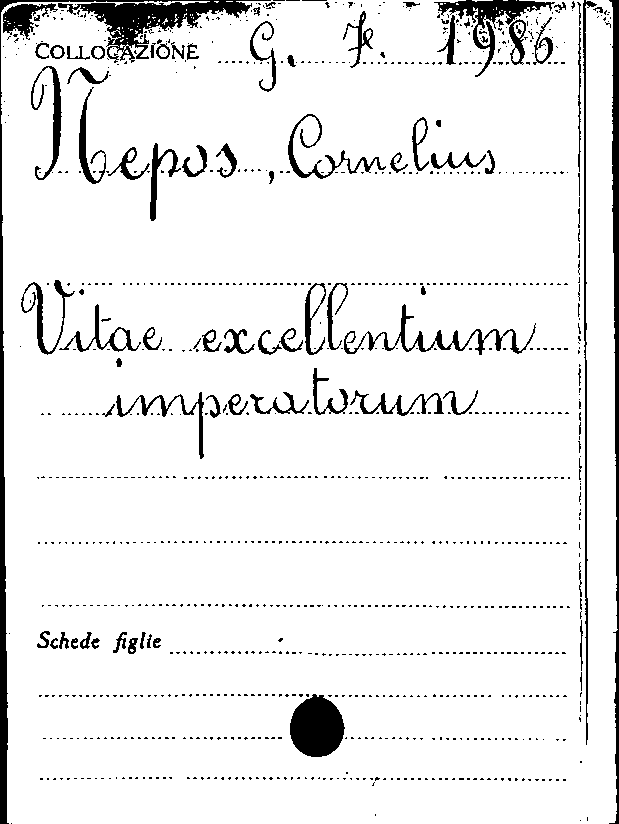 COLLOCAZIONE G. F. 1986
Nepos, Cornelius
Vitae excellentium
imperatorum
Schede figlie